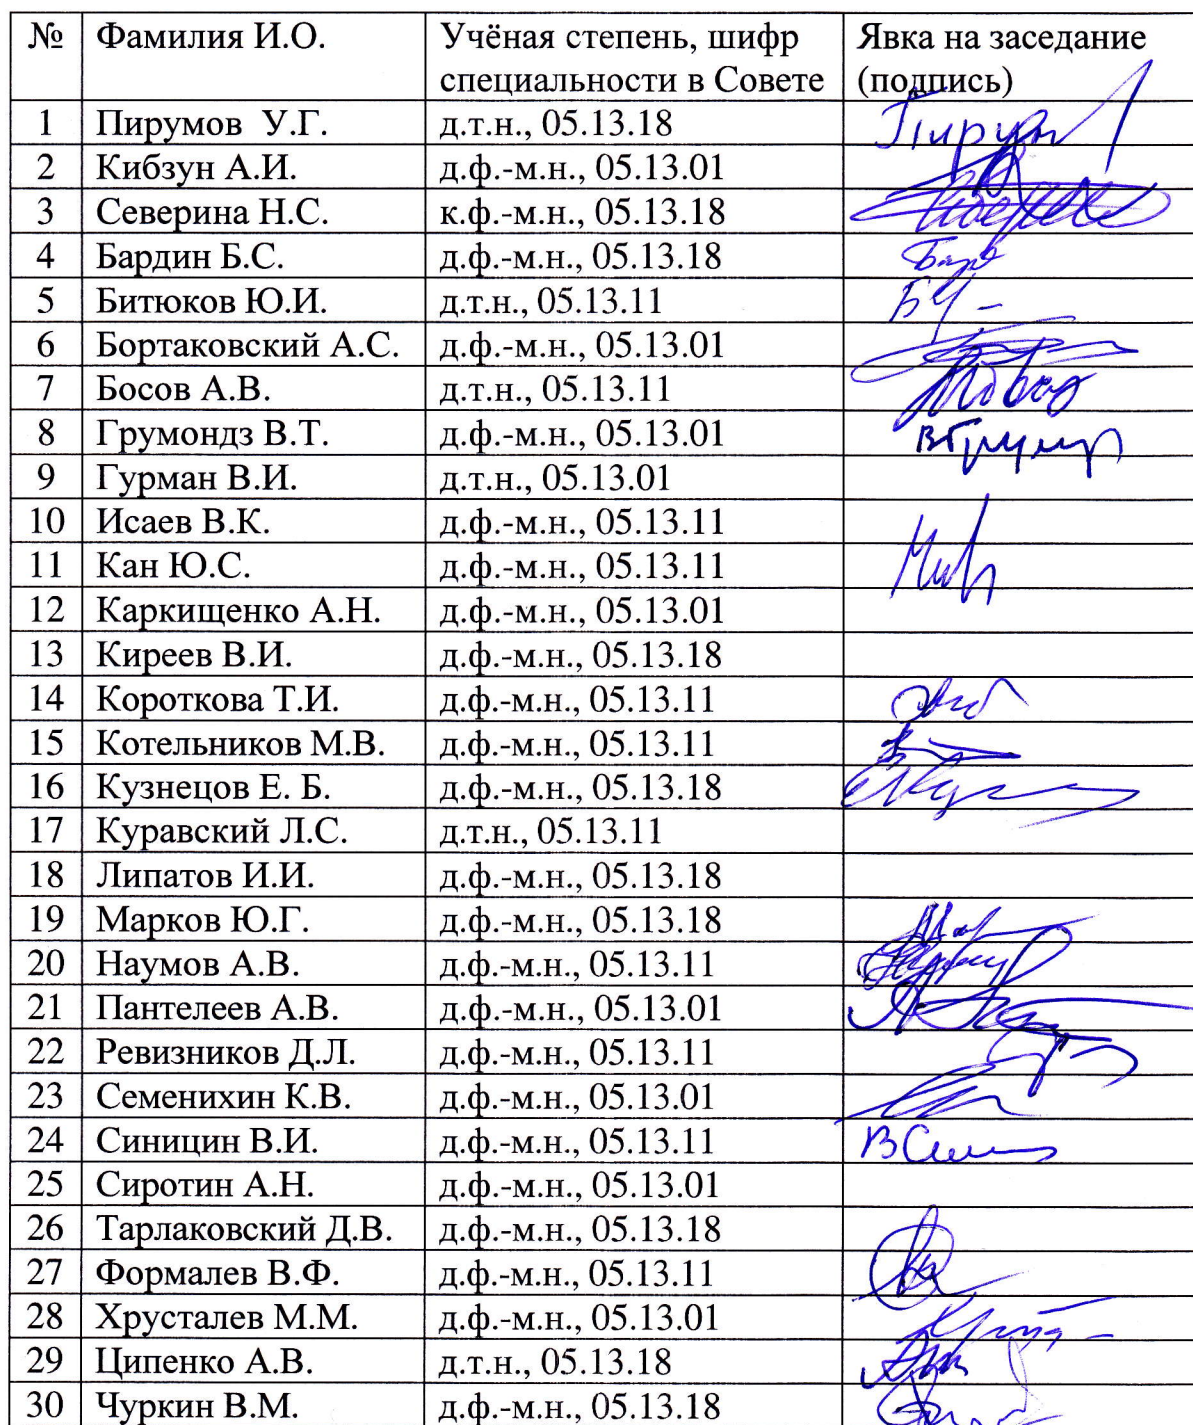 № Фамилия И.О. Учёная степень, шифр Явка на заседание
специальности в Совете (подпись)
1 Пирумов У.Г. д.т.н., 05.13.18
2 Кибзун А.И. д.ф.-м.н., 05.13.01
3 Северина Н.С. к.ф.-м.н., 05.13.18
4 Бардин Б.С. д.ф.-м.н., 05.13.18
5 Битюков Ю.И. д.т.н., 05.13.11
6 Бортаковский А.С. д.ф.-м.н., 05.13.01
7 Босов А.В. д.т.н., 05.13.11
8 Грумондз В.Т. д.ф.-м.н., 05.13.01
9 Гурман В.И. д.т.н., 05.13.01
10 Исаев В.К. д.ф.-м.н., 05.13.11
11 Кан Ю.С. д.ф.-м.н., 05.13.11
12 Каркищенко А.Н. д.ф.-м.н., 05.13.01
13 Киреев В.И. д.ф.-м.н., 05.13.18
14 Короткова Т.И. д.ф.-м.н., 05.13.11
15 Котельников М.В. д.ф.-м.н., 05.13.11
16 Кузнецов Е. Б. д.ф.-м.н., 05.13.18
17 Куравский Л.С. д.т.н., 05.13.11
18 Липатов И.И. д.ф.-м.н., 05.13.18
19 Марков Ю.Г. д.ф.-м.н., 05.13.18
20 Наумов А.В. д.ф.-м.н., 05.13.11
21 Пантелеев А.В. д.ф.-м.н., 05.13.01
22 Ревизников Д.Л. д.ф.-м.н., 05.13.11
23 Семенихин К.В. д.ф.-м.н., 05.13.01
24 Синицин В.И. д.ф.-м.н., 05.13.11
25 Сиротин А.Н. д.ф.-м.н., 05.13.01
26 Тарлаковский Д.В. д.ф.-м.н., 05.13.18
27 Формалев В.Ф. д.ф.-м.н., 05.13.11
28 Хрусталев М.М. д.ф.-м.н., 05.13.01
29 Ципенко А.В. д.т.н., 05.13.18
30 Чуркин В.М. д.ф.-м.н., 05.13.18